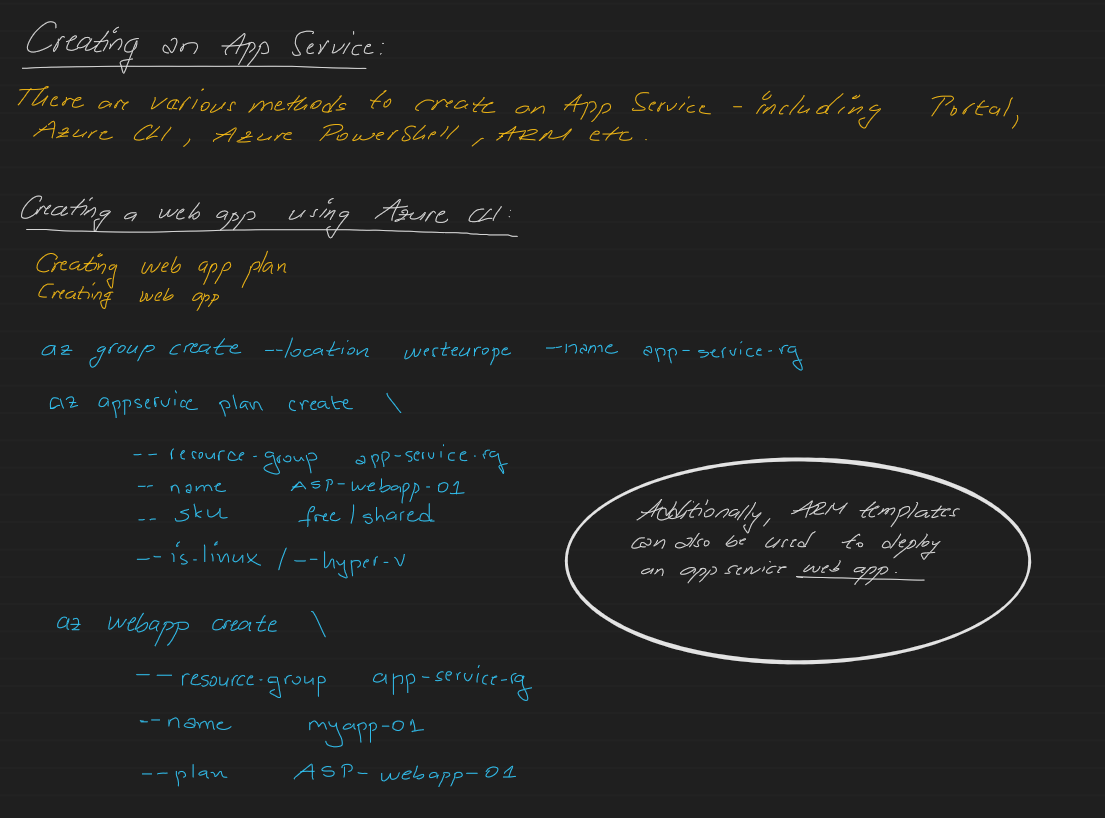 Creating an App Service:
There are various methods to create an App Service - including Portal,
Azure CLI, Azure PowerShell, ARM etc.
Creating a web app using Azure CLI:
Creating web app plan
Creating web app
az group create --location westeurope --name app-service-rg
az appservice plan create \
-- resource-group app-service-rg
-- name ASP-webapp-01
-- sku free / shared
-- is-linux / --hyper-v
Additionally, ARM templates
can also be used to deploy
an app service web app.
az webapp create \
-- resource-group app-service-rg
--name myapp-01
--plan ASP-webapp-01